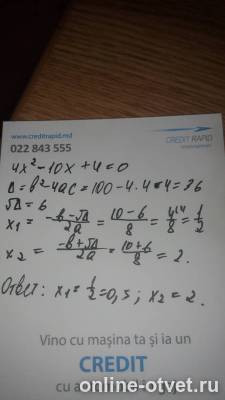 www.creditrapid.md
022 843 555
CREDIT RAPID
4x² - 10x + 4 = 0
D = b² - 4ac = 100 - 4·4·4 = 36
√D = 6
x₁ = (-b-√D)/2a = (10-6)/8 = 4/8 = 1/2
x₂ = (-b+√D)/2a = (10+6)/8 = 2.
Ответ: x₁ = 1/2 = 0,5; x₂ = 2.
Vino cu mașina ta și ia un
CREDIT
cu a
online-otvet.ru